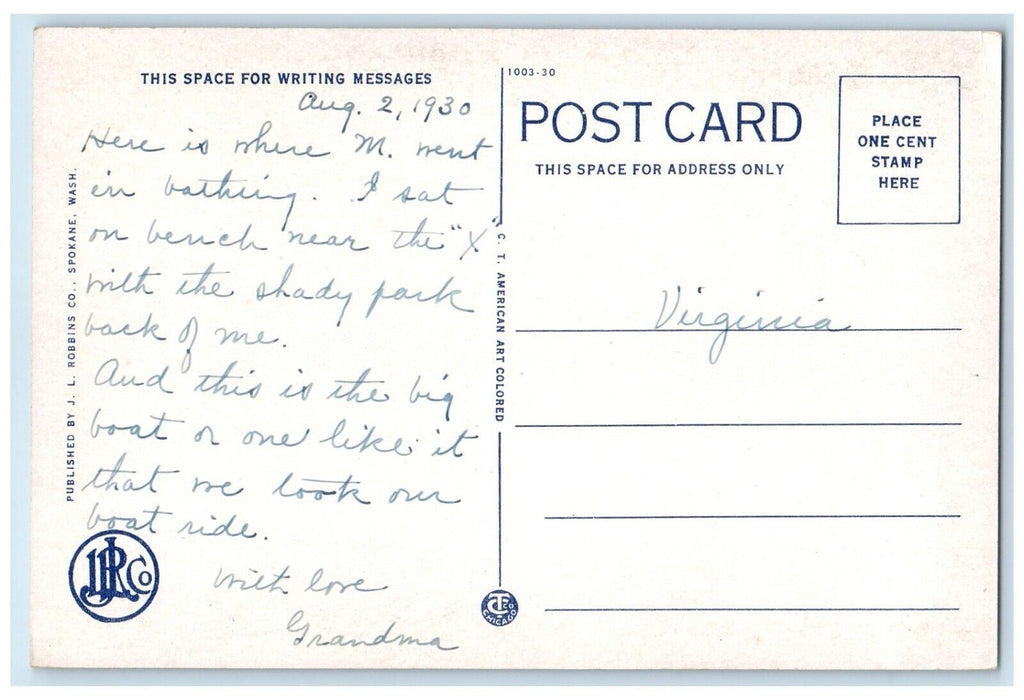 THIS SPACE FOR WRITING MESSAGES
Aug. 2, 1930
Here is where M. went
in bathing. I sat
on bench near the "X"
with the shady park
back of me.
And this is the big
boat or one like it
that we took our
boat ride.
With love
Grandma
PUBLISHED BY J. L. ROBBINS CO., SPOKANE, WASH.
JLR Co
1003-30
POST CARD
THIS SPACE FOR ADDRESS ONLY
PLACE
ONE CENT
STAMP
HERE
C. T. AMERICAN ART COLORED
Virginia
CT Co
CHICAGO